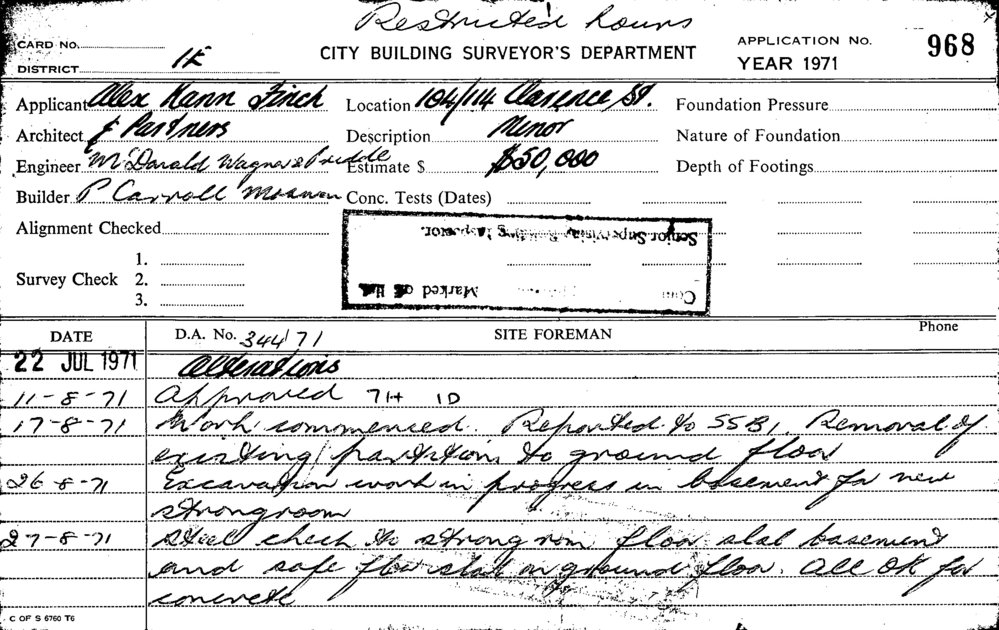 Restricted hours
CARD NO.
CITY BUILDING SURVEYOR'S DEPARTMENT
APPLICATION No. 968
DISTRICT 1E
YEAR 1971
Applicant Alex Kann Finch Location 104/114 Clarence St. Foundation Pressure
Architect & Partners Description Minor Nature of Foundation
Engineer McDonald Wagner & Priddle Estimate $ $50,000 Depth of Footings
Builder P Carroll Conc. Tests (Dates)
Alignment Checked
Senior Supervising Building Inspector.
1.
Survey Check 2.
3.
Marked off
DATE D.A. No. 344/71 SITE FOREMAN Phone
22 JUL 1971 Alterations
11-8-71 Approved 7H 1D
17-8-71 Work commenced. Reported to SSBI. Removal of
existing partitions to ground floor
26-8-71 Excavation work in progress in basement for new
strongroom
27-8-71 Steel check to strong room floor slab basement
and safe floor slab on ground floor. All OK for
concrete
C OF S 6760 T6